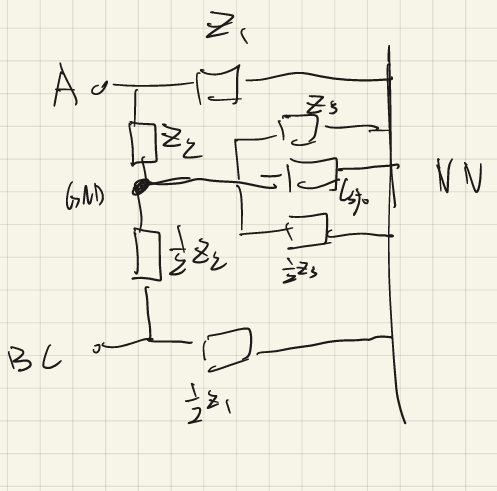 Z₁
A
Z₃
Z₂
GND
N N
½ Z₂
½ Z₃
B C
½ Z₁